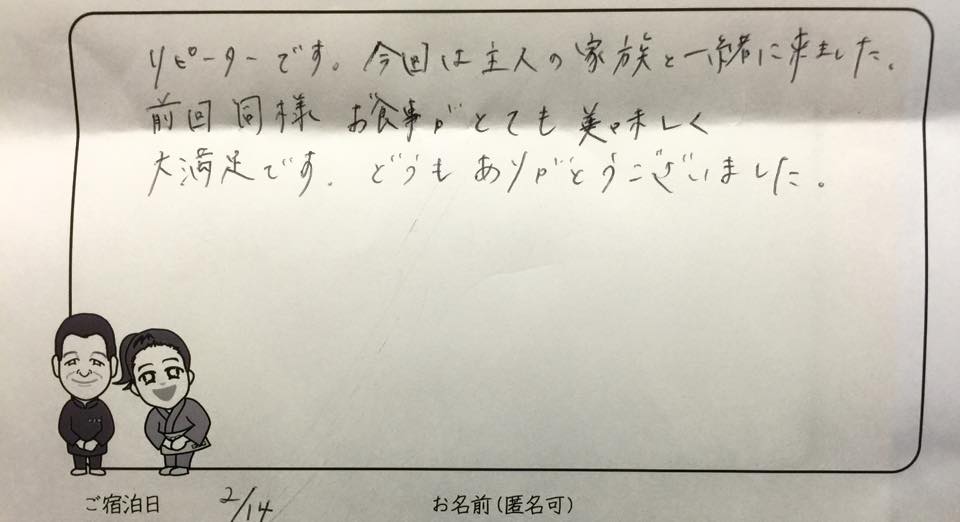 リピーターです。今回は主人の家族と一緒に来ました。
前回同様 お食事がとても美味しく
大満足です。どうもありがとうございました。
ご宿泊日 2/14 お名前(匿名可)